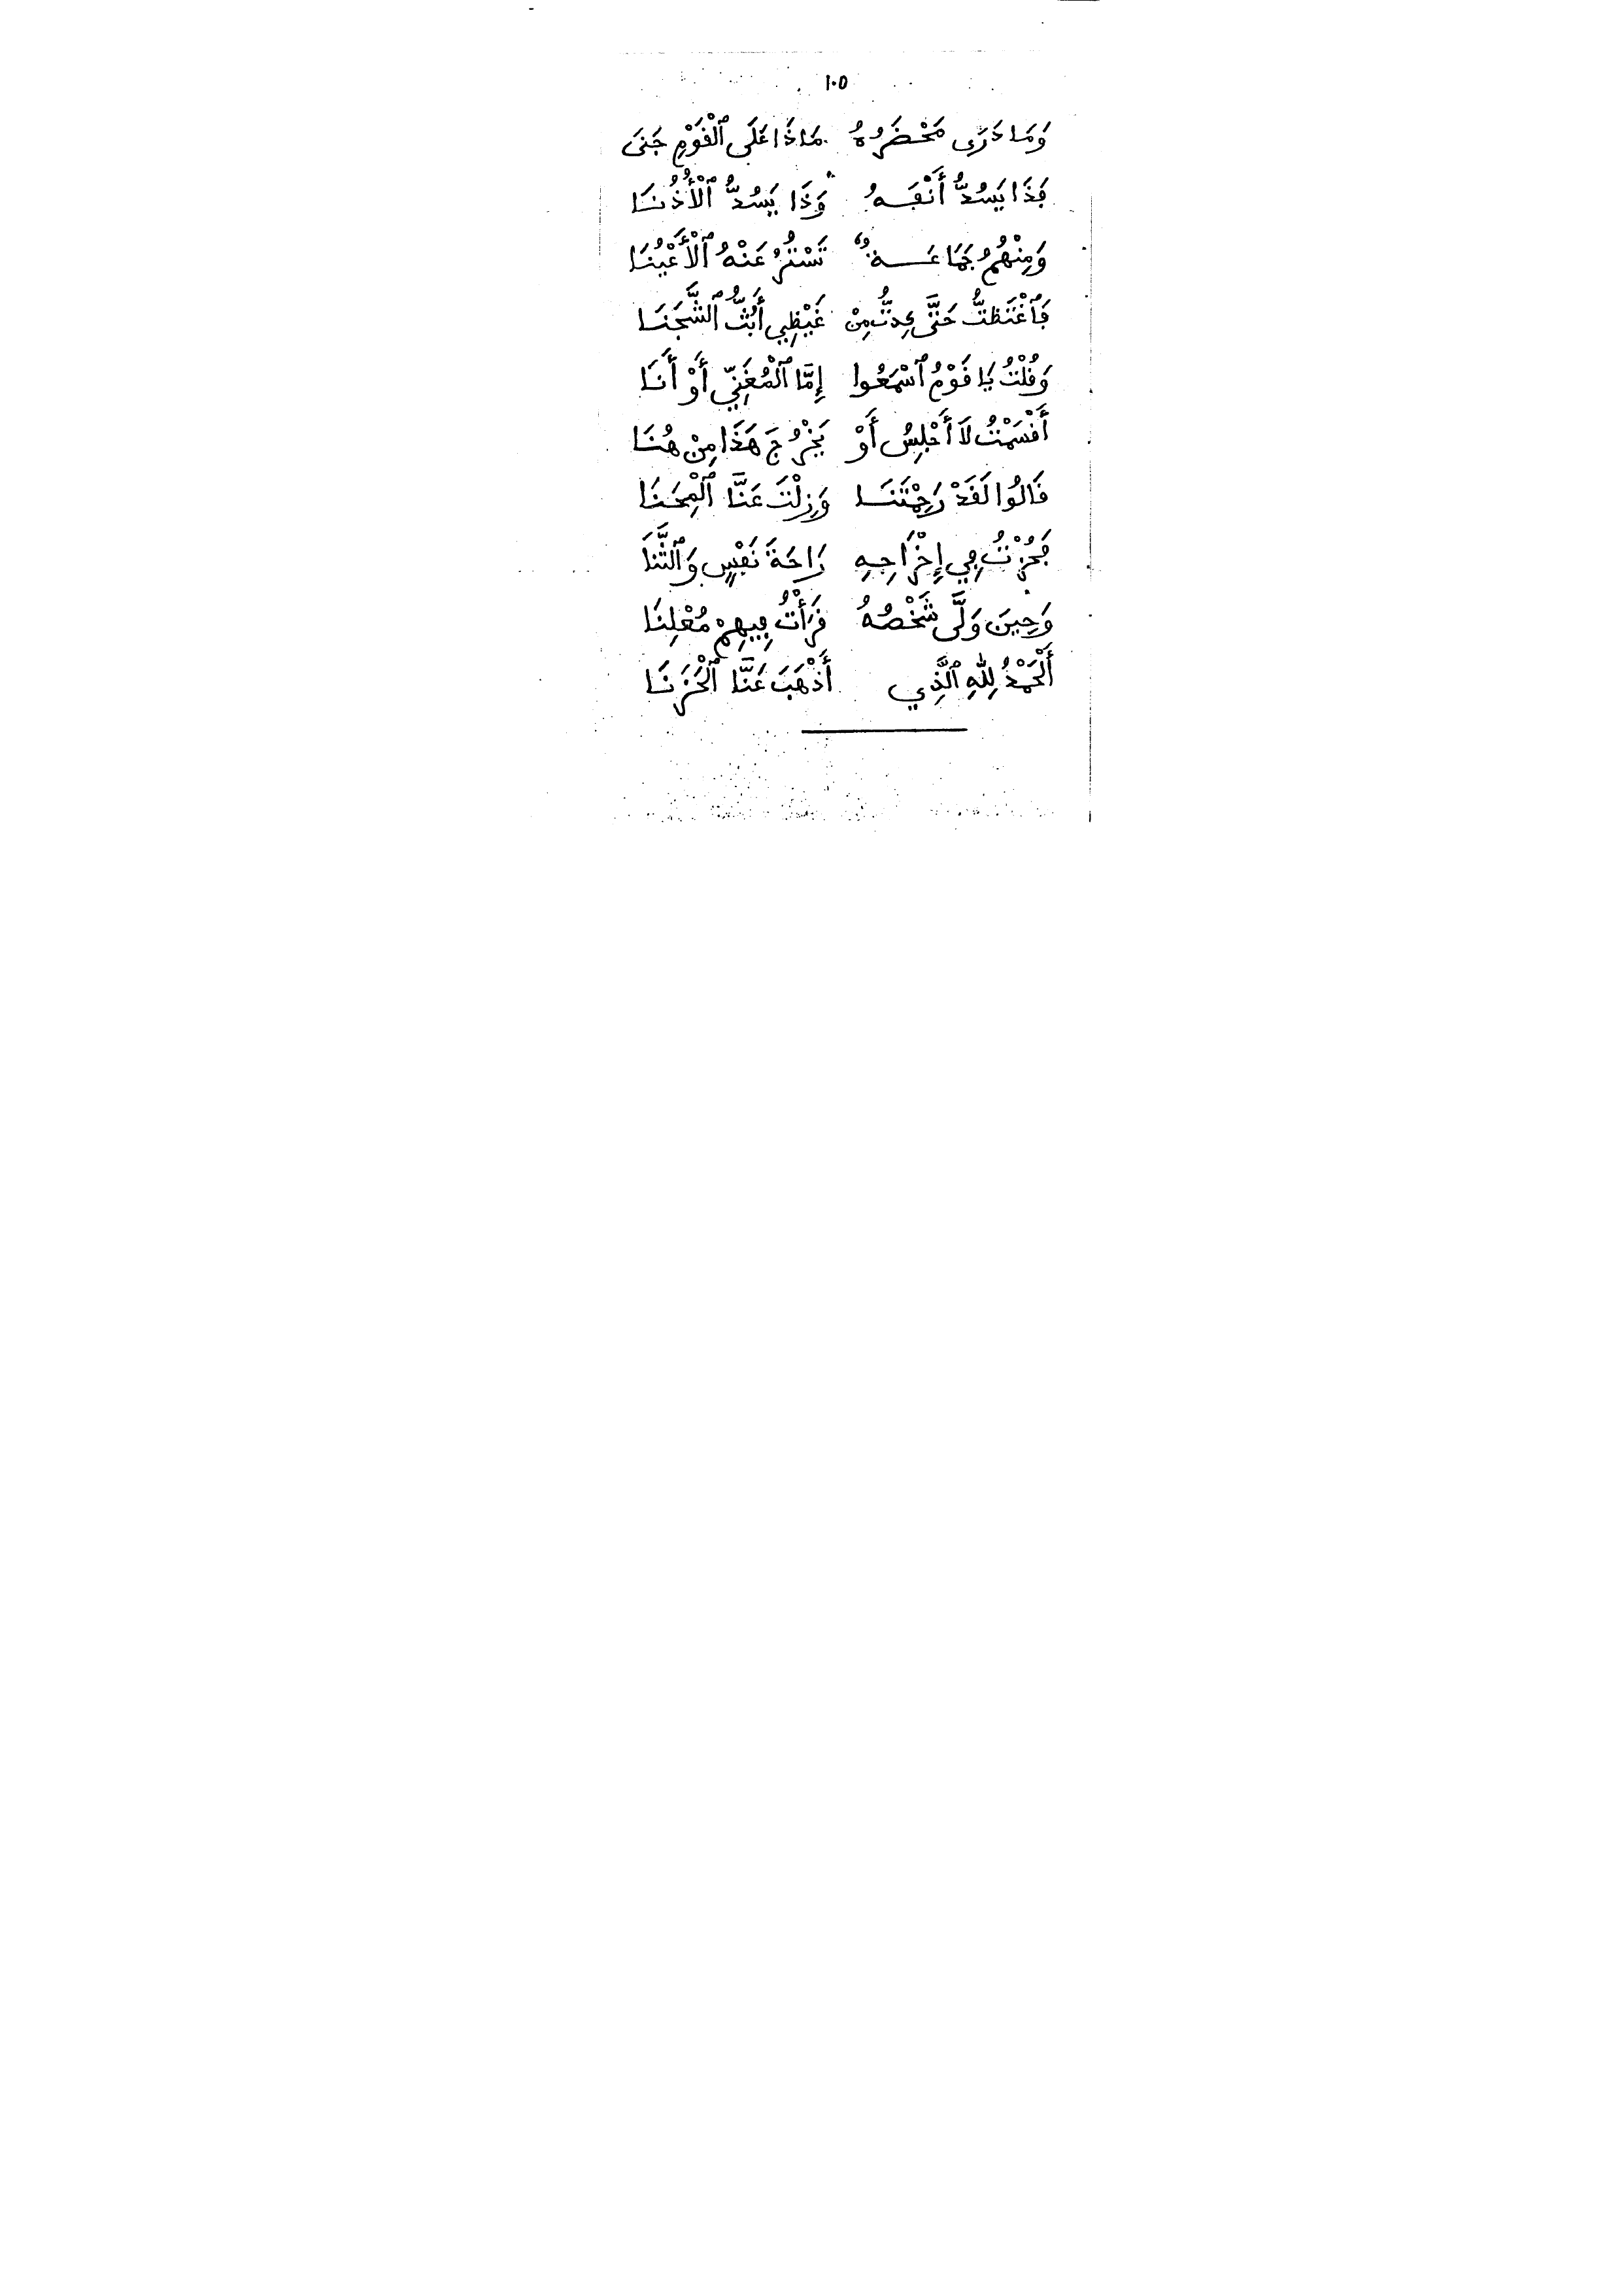 ١٠٥
وَمَا دَرَى مَحْضَرُهُ مَاذَا عَلَى ٱلْقَوْمِ جَنَى
فَذَا يَسُدُّ أَنْفَهُ وَذَا يَسُدُّ ٱلْأُذُنَا
وَمِنْهُمُ جَمَاعَةٌ تَسْتُرُ عَنْهُ ٱلْأَعْيُنَا
فَٱغْتَظتُّ حَتَّى كِدتُّ مِنْ غَيْظِي أَبُثُّ ٱلشَّجَنَا
وَقُلْتُ يَا قَوْمُ ٱسْمَعُوا إِمَّا ٱلْمُغَنِّي أَوْ أَنَا
أَقْسَمْتُ لَا أَجْلِسُ أَوْ يَخْرُجَ هَذَا مِنْ هُنَا
قَالُوا لَقَدْ رَحِمْتَنَا وَزِلْتَ عَنَّا ٱلْمِحَنَا
فَحُزْتُ فِي إِخْرَاجِهِ رَاحَةَ نَفْسٍ وَٱلثَّنَا
وَحِينَ وَلَّى شَخْصُهُ قَرَأْتُ فِيهِمْ مُعْلِنَا
أَلْحَمْدُ لِلَّهِ ٱلَّذِي أَذْهَبَ عَنَّا ٱلْحَزَنَا